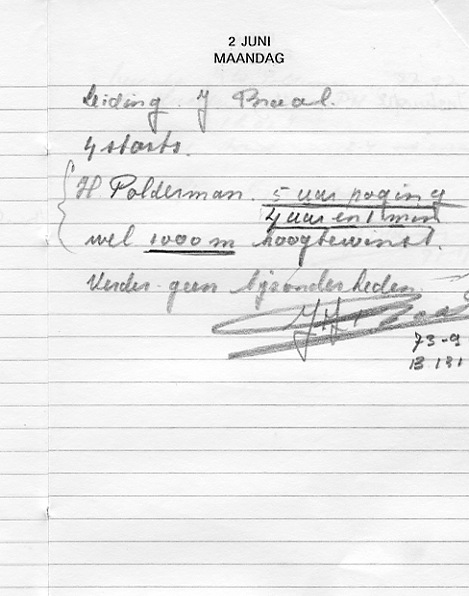 2 JUNI
MAANDAG
Leiding. J Braal.
4 starts.
H Polderman. 5 uur poging
4 uur en 1 min
wel 1000 m hoogtewinst.
Verder geen bijzonderheden.
73-9
B 131